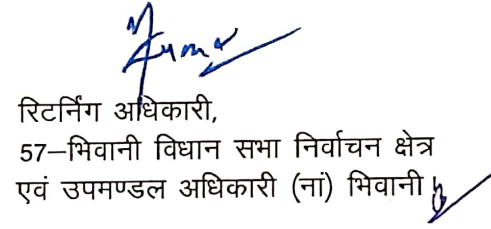 रिटर्निंग अधिकारी,
57–भिवानी विधान सभा निर्वाचन क्षेत्र
एवं उपमण्डल अधिकारी (नां) भिवानी